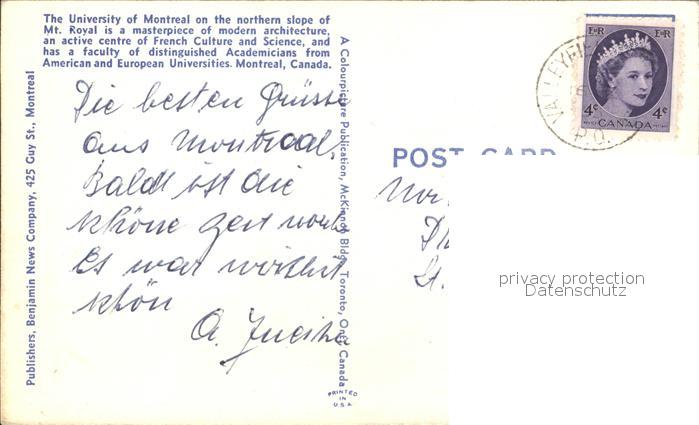 The University of Montreal on the northern slope of
Mt. Royal is a masterpiece of modern architecture,
an active centre of French Culture and Science, and
has a faculty of distinguished Academicians from
American and European Universities. Montreal, Canada.
Die besten Grüsse
aus Montreal.
Bald ist die
schöne Zeit
Es war wirklich
schön
A.
Publishers, Benjamin News Company, 425 Guy St., Montreal
A Colourpicture Publication, McKinnon Bldg., Toronto, Ont., Canada
PRINTED
IN
U.S.A.
POST CARD
St.
E R E R
4¢ 4¢
CANADA
VALLEYFI
P.Q.
privacy protection
Datenschutz